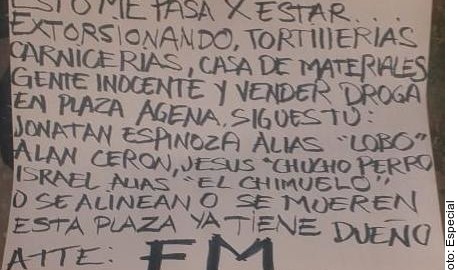 ESTO ME PASA X ESTAR...
EXTORSIONANDO, TORTIIIERIAS
CARNICERIAS, CASA DE MATERIALES
GENTE INOCENTE Y VENDER DROGA
EN PLAZA AGENA, SIGUES TU:
JONATAN ESPINOZA ALIAS "LOBO"
ALAN CERON, JESUS "CHUCHO PERRO
ISRAEL ALIAS "EL CHIMUELO",
O SE ALINEAN O SE MUEREN
ESTA PLAZA YA TIENE DUEÑO
ATTE: FM
oto: Especial